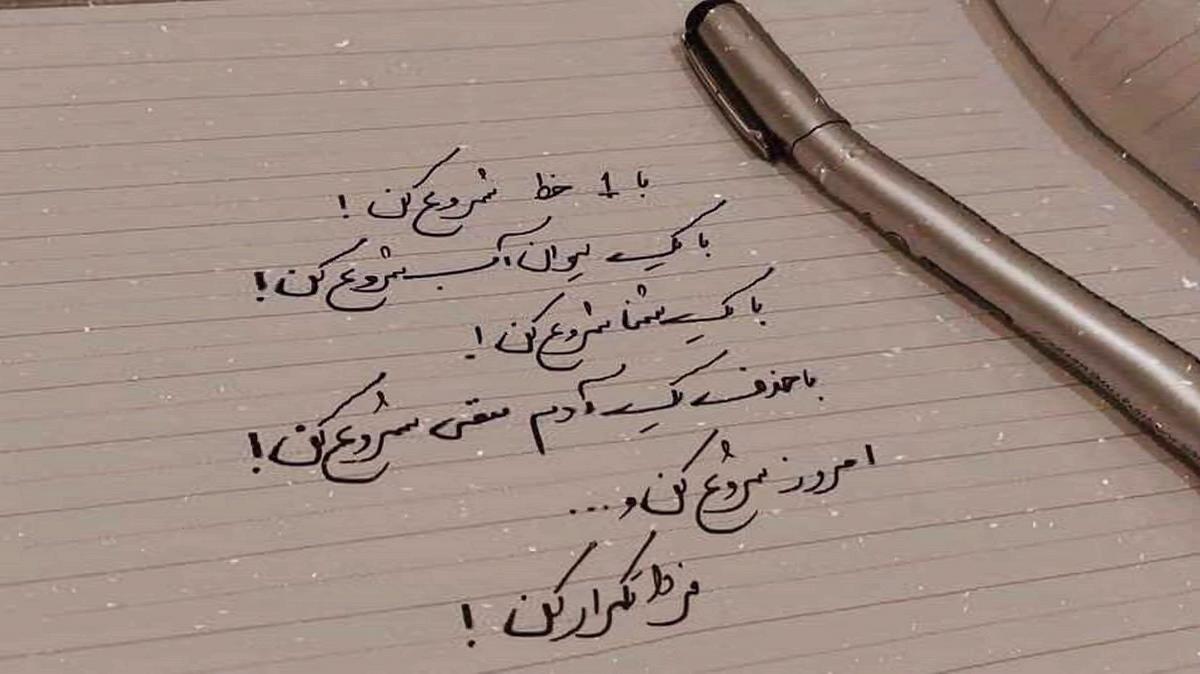 با 1 خط شروع کن !
با یک لیوان آب شروع کن !
با یک شنا شروع کن !
با حذف یک آدم منفی شروع کن !
امروز شروع کن و...
فردا تکرار کن !